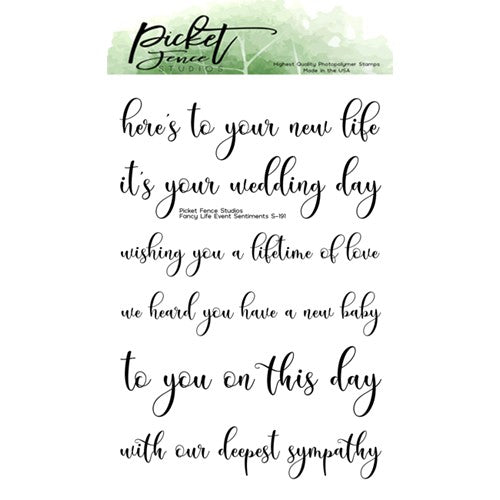 Picket
Fence
STUDIOS
Highest Quality Photopolymer Stamps
Made in the USA
here's to your new life
it's your wedding day
Picket Fence Studios
Fancy Life Event Sentiments S-191
wishing you a lifetime of love
we heard you have a new baby
to you on this day
with our deepest sympathy